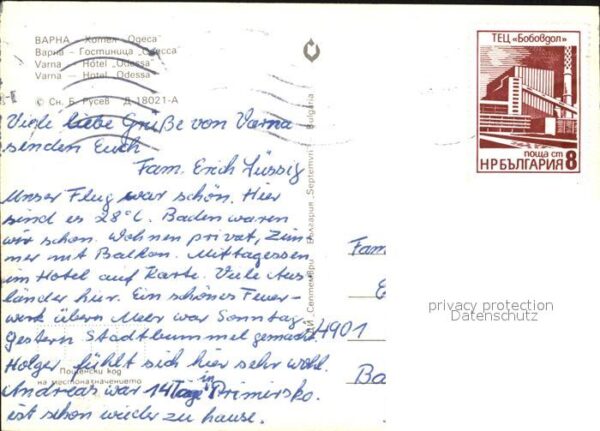 ВАРНА – Хотел „Одеса"
Варна – Гостиница „Одесса"
Varna – Hôtel „Odessa"
Varna – Hotel „Odessa"
© Сн. Б. Русев Д-18021-А
ТЕЦ „Бобовдол"
поща ст
НРБЪЛГАРИЯ 8
Viele liebe Grüße von Varna
senden Euch
Fam. Erich Süssig
Unser Flug war schön. Hier
sind es 28°C. Baden waren
wir schon. Wohnen privat, Zim
mer mit Balkon. Mittagessen
im Hotel auf Karte. Viele Aus
länder hier. Ein schönes Feuer-
werk übern Meer war Sonntag
Gestern Stadtbummel gemacht.
Holger fühlt sich hier sehr wohl.
Andreas war 14 Tage in Primorsko.
ist schon wieder zu hause.
Пощенски код
на местоназначението
България "Septemvri" Bulgaria
„Септември"
Fam
E
4901
Ba
privacy protection
Datenschutz